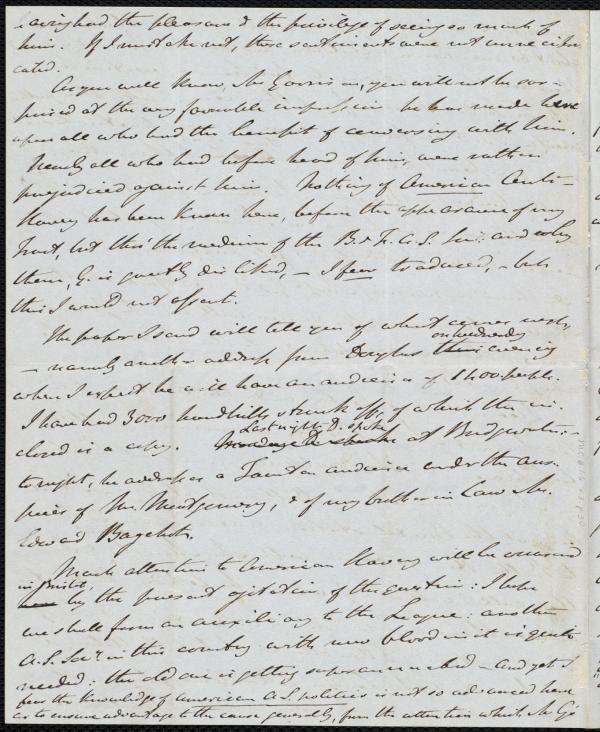 having had the pleasure & the privilege of seeing so much of
him. If I mistake not, these sentiments were not unrecipro-
cated.
As you well know Mr Garrison, you will not be sur-
prised at the very favorable impression he has made here
upon all who had the benefit of conversing with him.
Nearly all who had before heard of him, were rather
prejudiced against him. Nothing of American Anti-
Slavery has been known here, before the appearance of my
tract, but thro' the medium of the B. & F. A. S. Soc: and by
them, G. is greatly disliked, – I fear traduced, – but
this I would not assert.
The paper I send will tell you of what comes next,
– namely another address from Douglass on wednesday evening
when I expect he will have an audience of 1400 people.
I have had 3000 handbills struck off, of which the in-
closed is a copy. Last night, D. spoke at Bridgwater, –
to-night, he addresses a Taunton audience under the aus-
pices of Mr. Montgomery, & of my brother in law Mr.
Edward Bagehot.
Much attention to American Slavery will be occasioned
in Bristol by the present agitation of the question: I hope
we shall form an auxiliary to the League: another
A.S. Socy in this country with new blood in it is greatly
needed: the old one is getting superannuated – and yet I
fear the knowledge of American A.S. politics is not so advanced here
as to ensure advantage to the cause generally, from the attention which Mr G's